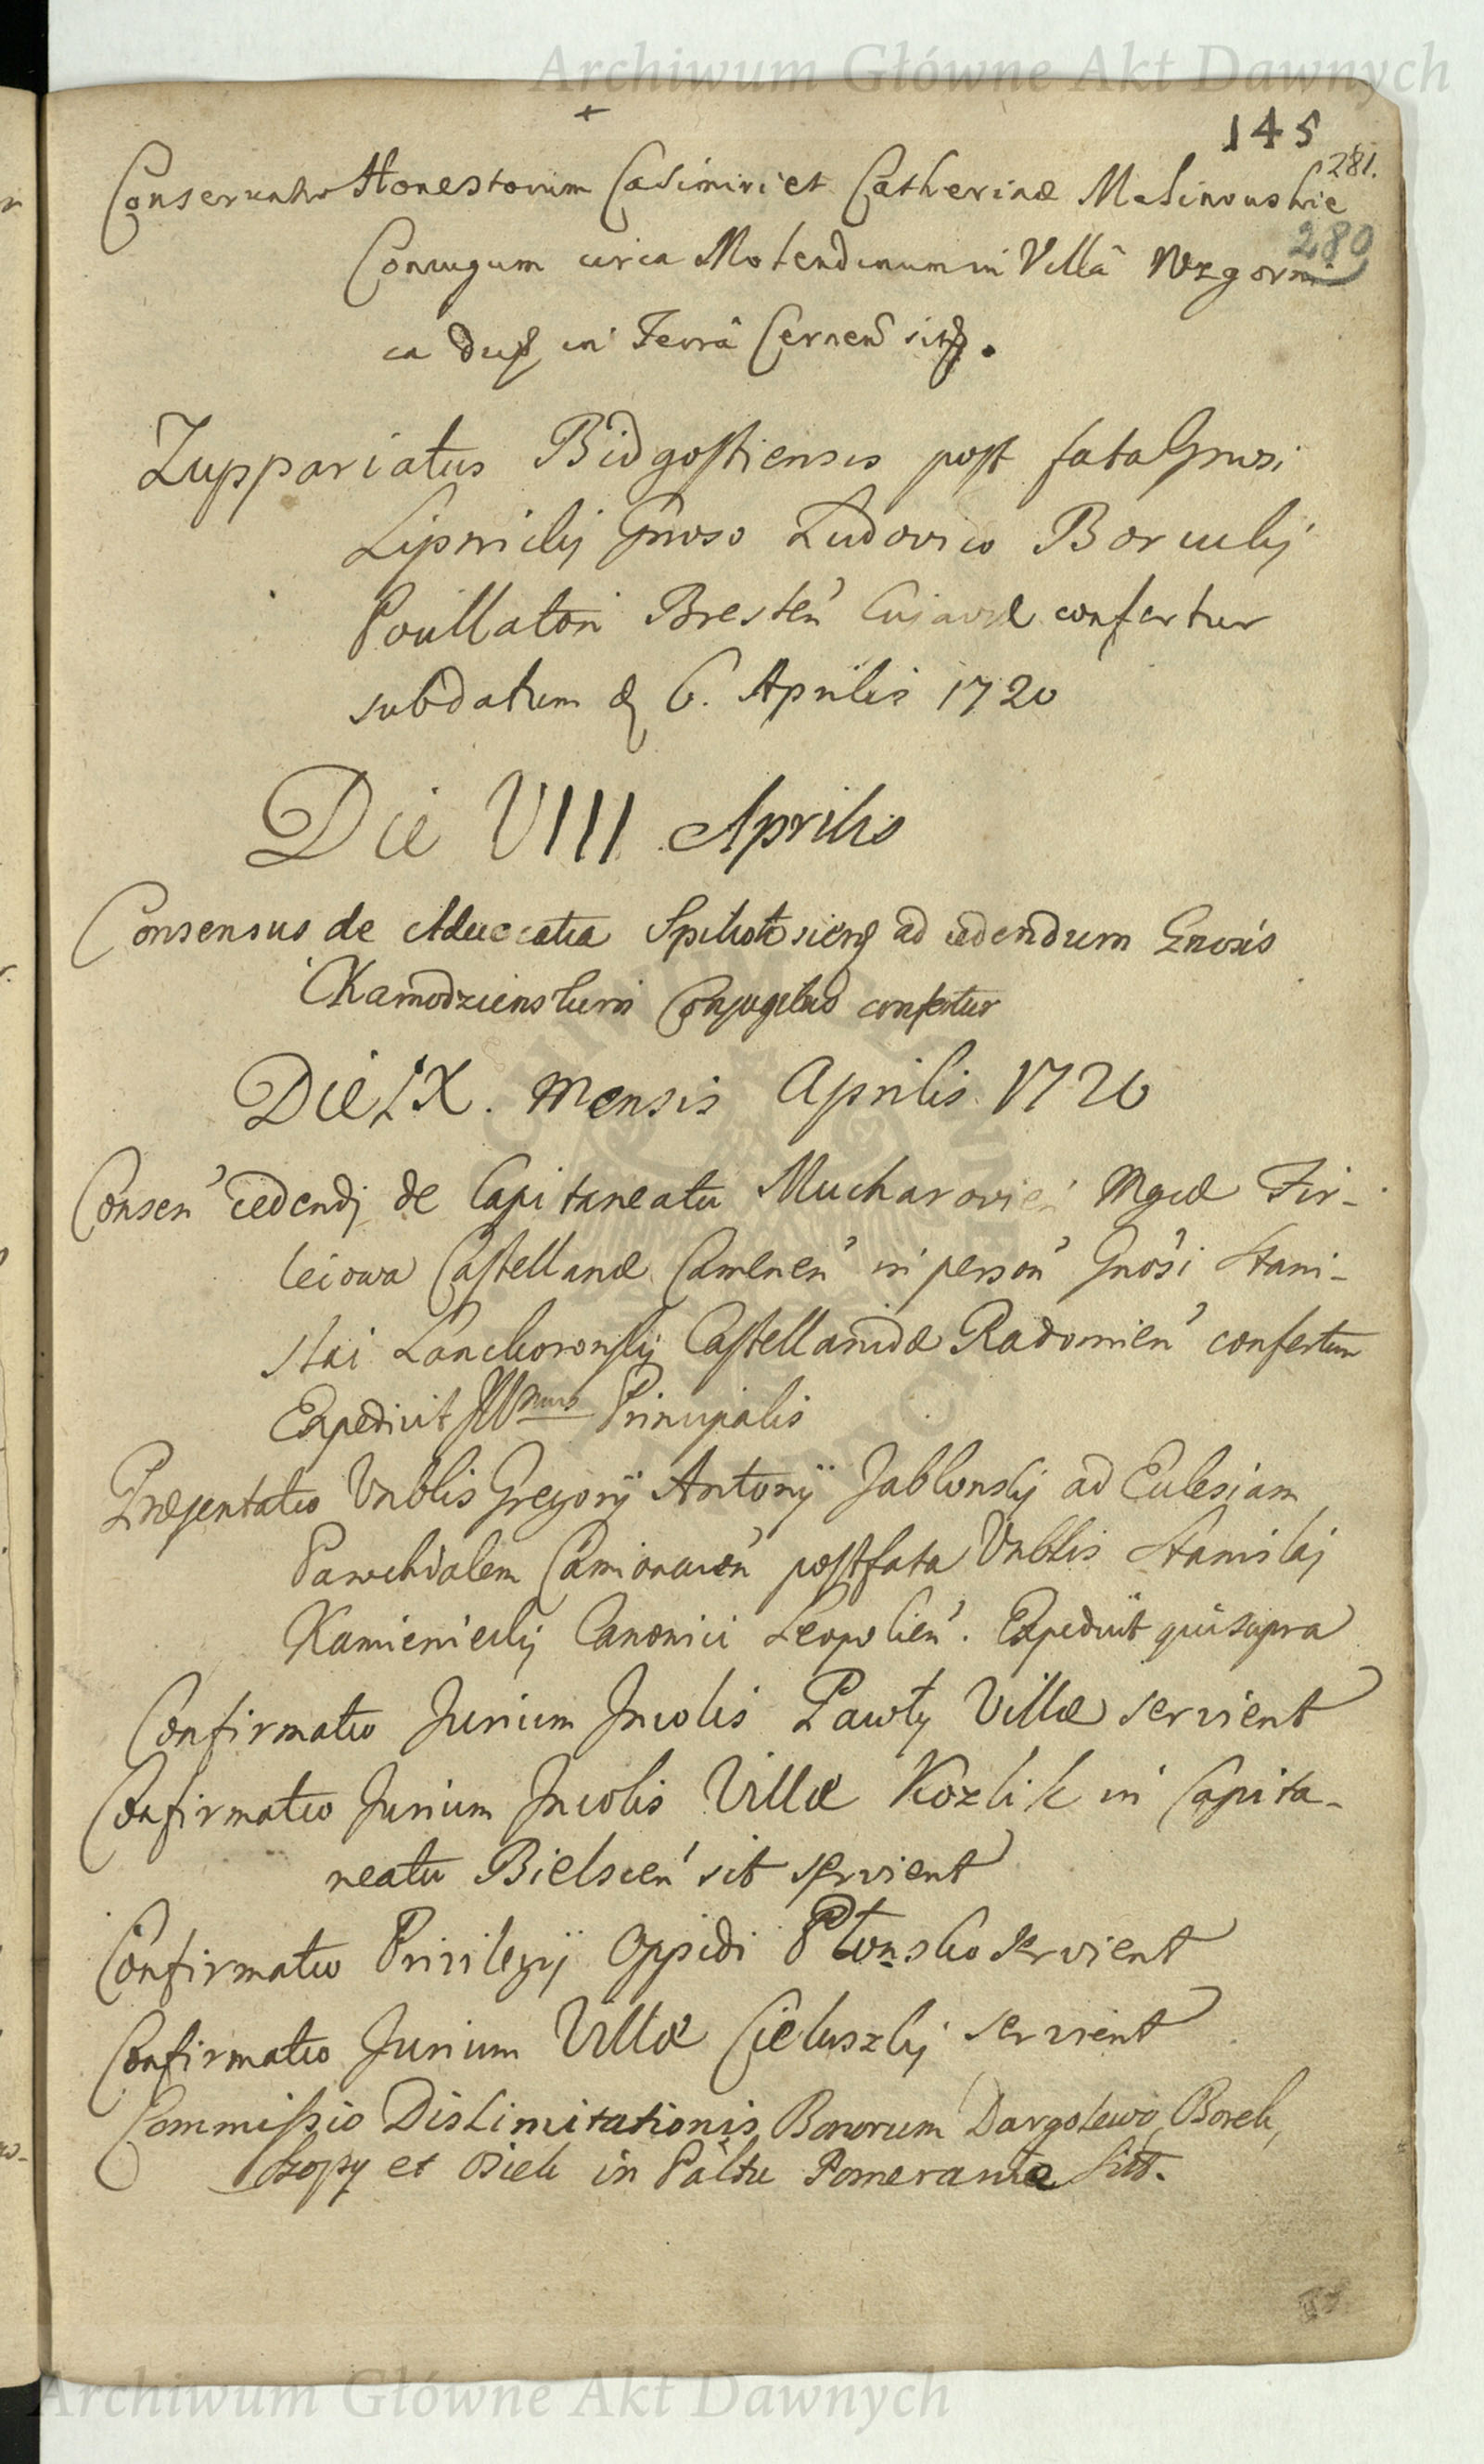 Archiwum Główne Akt Dawnych
145
281.
Conservatio Honestorum Casimiri et Catherinæ Malinouskie
280
Coniugum circa Molendinum in Villâ Wzgorni
ca dict in Terrâ Cernen sit.
Zuppariatus Bidgostiensis post fata Gnosi
Lipnicki Gnoso Ludovico Borucki
Pocillatori Bresten Cujaviæ confertur
sub datum d 6. Aprilis 1720
Die VIII Aprilis
Consensus de Advocatia ad cedendum Gnosis
Conjugibus confertur
Die IX. Mensis Aprilis 1720
Consen cedendj de Capitaneatu Mucharovien Mgcæ Fir-
leiowa Castellanæ Camenen in person Gnosi Stani-
slai Lanckoronskij Castellanidæ Radomien confertur
Expedivit Illmus Principalis
Præsentatio Vnblis Gregorij Antonij Jablonskij ad Eclesiam
Parochialem post fata Vnblis Stanislaj
Kamienieckij Canonici Leopolien. Expedivit qui supra
Confirmatio Jurium Incolis Pawły Villæ servient
Confirmatio Jurium Incolis Villæ Kozlik in Capita-
neatu Bielscen sit servient
Confirmatio Privilegij Oppidi Płonsko servient
Confirmatio Jurium Villæ Cieluszkij servient
Commissio Dislimitationis Bonorum Dargolewo, Borek,
et Osiek in Paltu Pomeraniæ Sitt.
Archiwum Główne Akt Dawnych